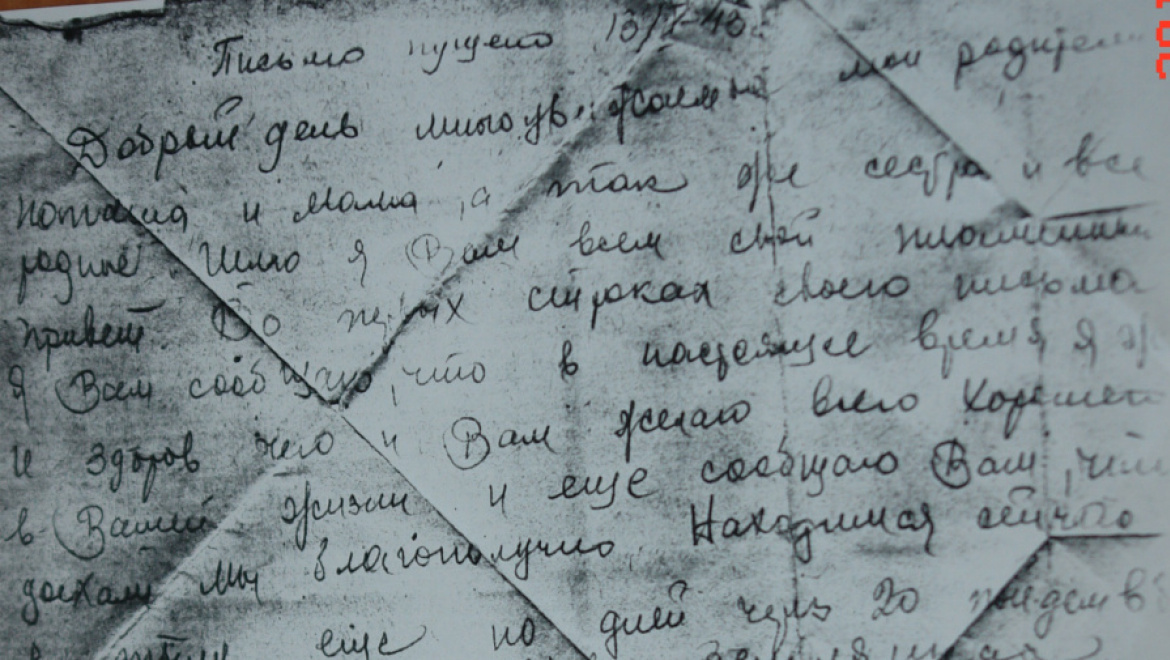 Письмо пущено 13/X-43г.
Добрый день многоуважаемые мои родители
папаша и мама, а так же сестра и все
родные. Шлю я Вам всем свой пламенный
привет. Во первых строках своего письма
я Вам сообщаю, что в настоящее время я
и здоров чего и Вам желаю всего хорошего
в Вашей жизни и еще сообщаю Вам, что
доехали мы благополучно. Находимся сейчас
еще но дней через 20 поедем в